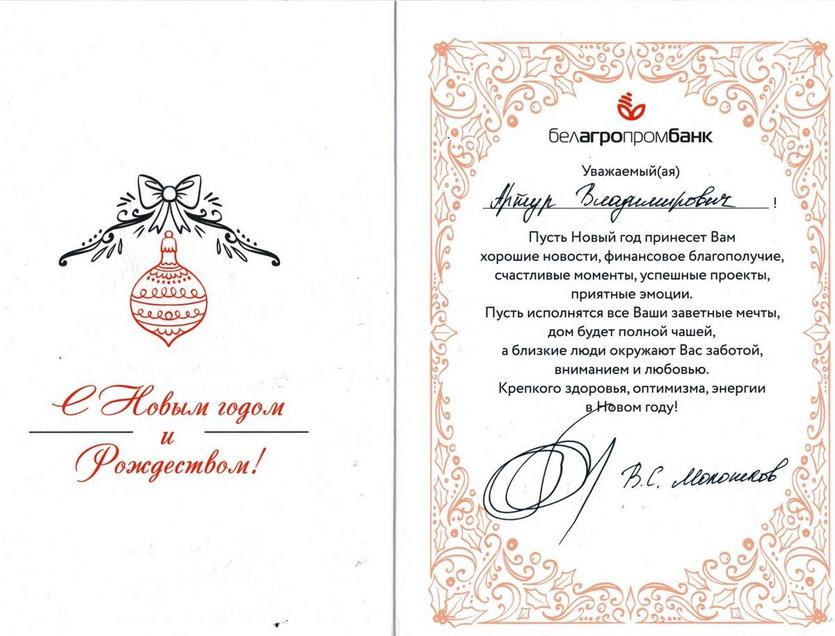 С Новым годом
и
Рождеством!
белагропромбанк
Уважаемый(ая)
Артур Владимирович !
Пусть Новый год принесет Вам
хорошие новости, финансовое благополучие,
счастливые моменты, успешные проекты,
приятные эмоции.
Пусть исполнятся все Ваши заветные мечты,
дом будет полной чашей,
а близкие люди окружают Вас заботой,
вниманием и любовью.
Крепкого здоровья, оптимизма, энергии
в Новом году!
В.С.